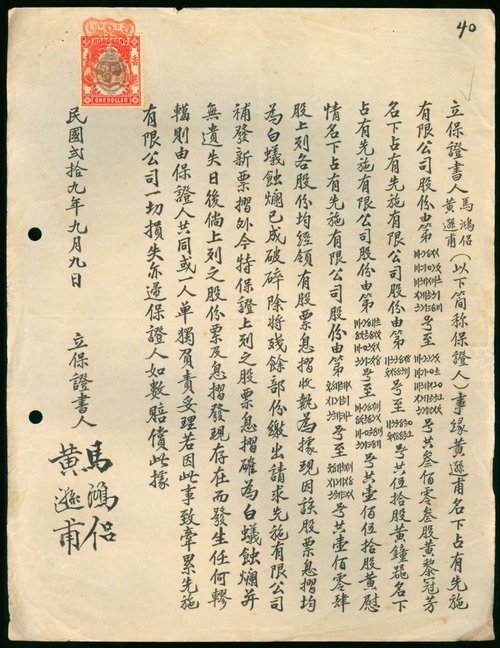 40
HONG KONG
香港
ONE DOLLAR
立保證書人馬鴻侶黃遜甫（以下簡稱保證人）事緣黃遜甫名下占有先施
有限公司股份由第
号至
号共叁佰零叁股黃黎冠芳
名下占有先施有限公司股份由第
号至
号共伍拾股黃鐘
名下
占有先施有限公司股份由第
号至
号共壹佰伍拾股黃慰
情名下占有先施有限公司股份由第
号至
号共壹佰零肆
股上列各股份均經領有股票息摺收執為據現因該股票息摺均
為白蟻蝕爛已成破碎除將殘餘部份繳出請求先施有限公司
補發新票摺外今特保證上列之股票息摺確為白蟻蝕爛并
無遺失日後倘上列之股份票及息摺發現存在而發生任何轇
轕則由保證人共同或一人单獨負責妥理若因此事致牽累先施
有限公司一切損失亦逓保證人如數賠償此據
民國弍拾九年九月九日
立保證書人
馬鴻侶
黃遜甫